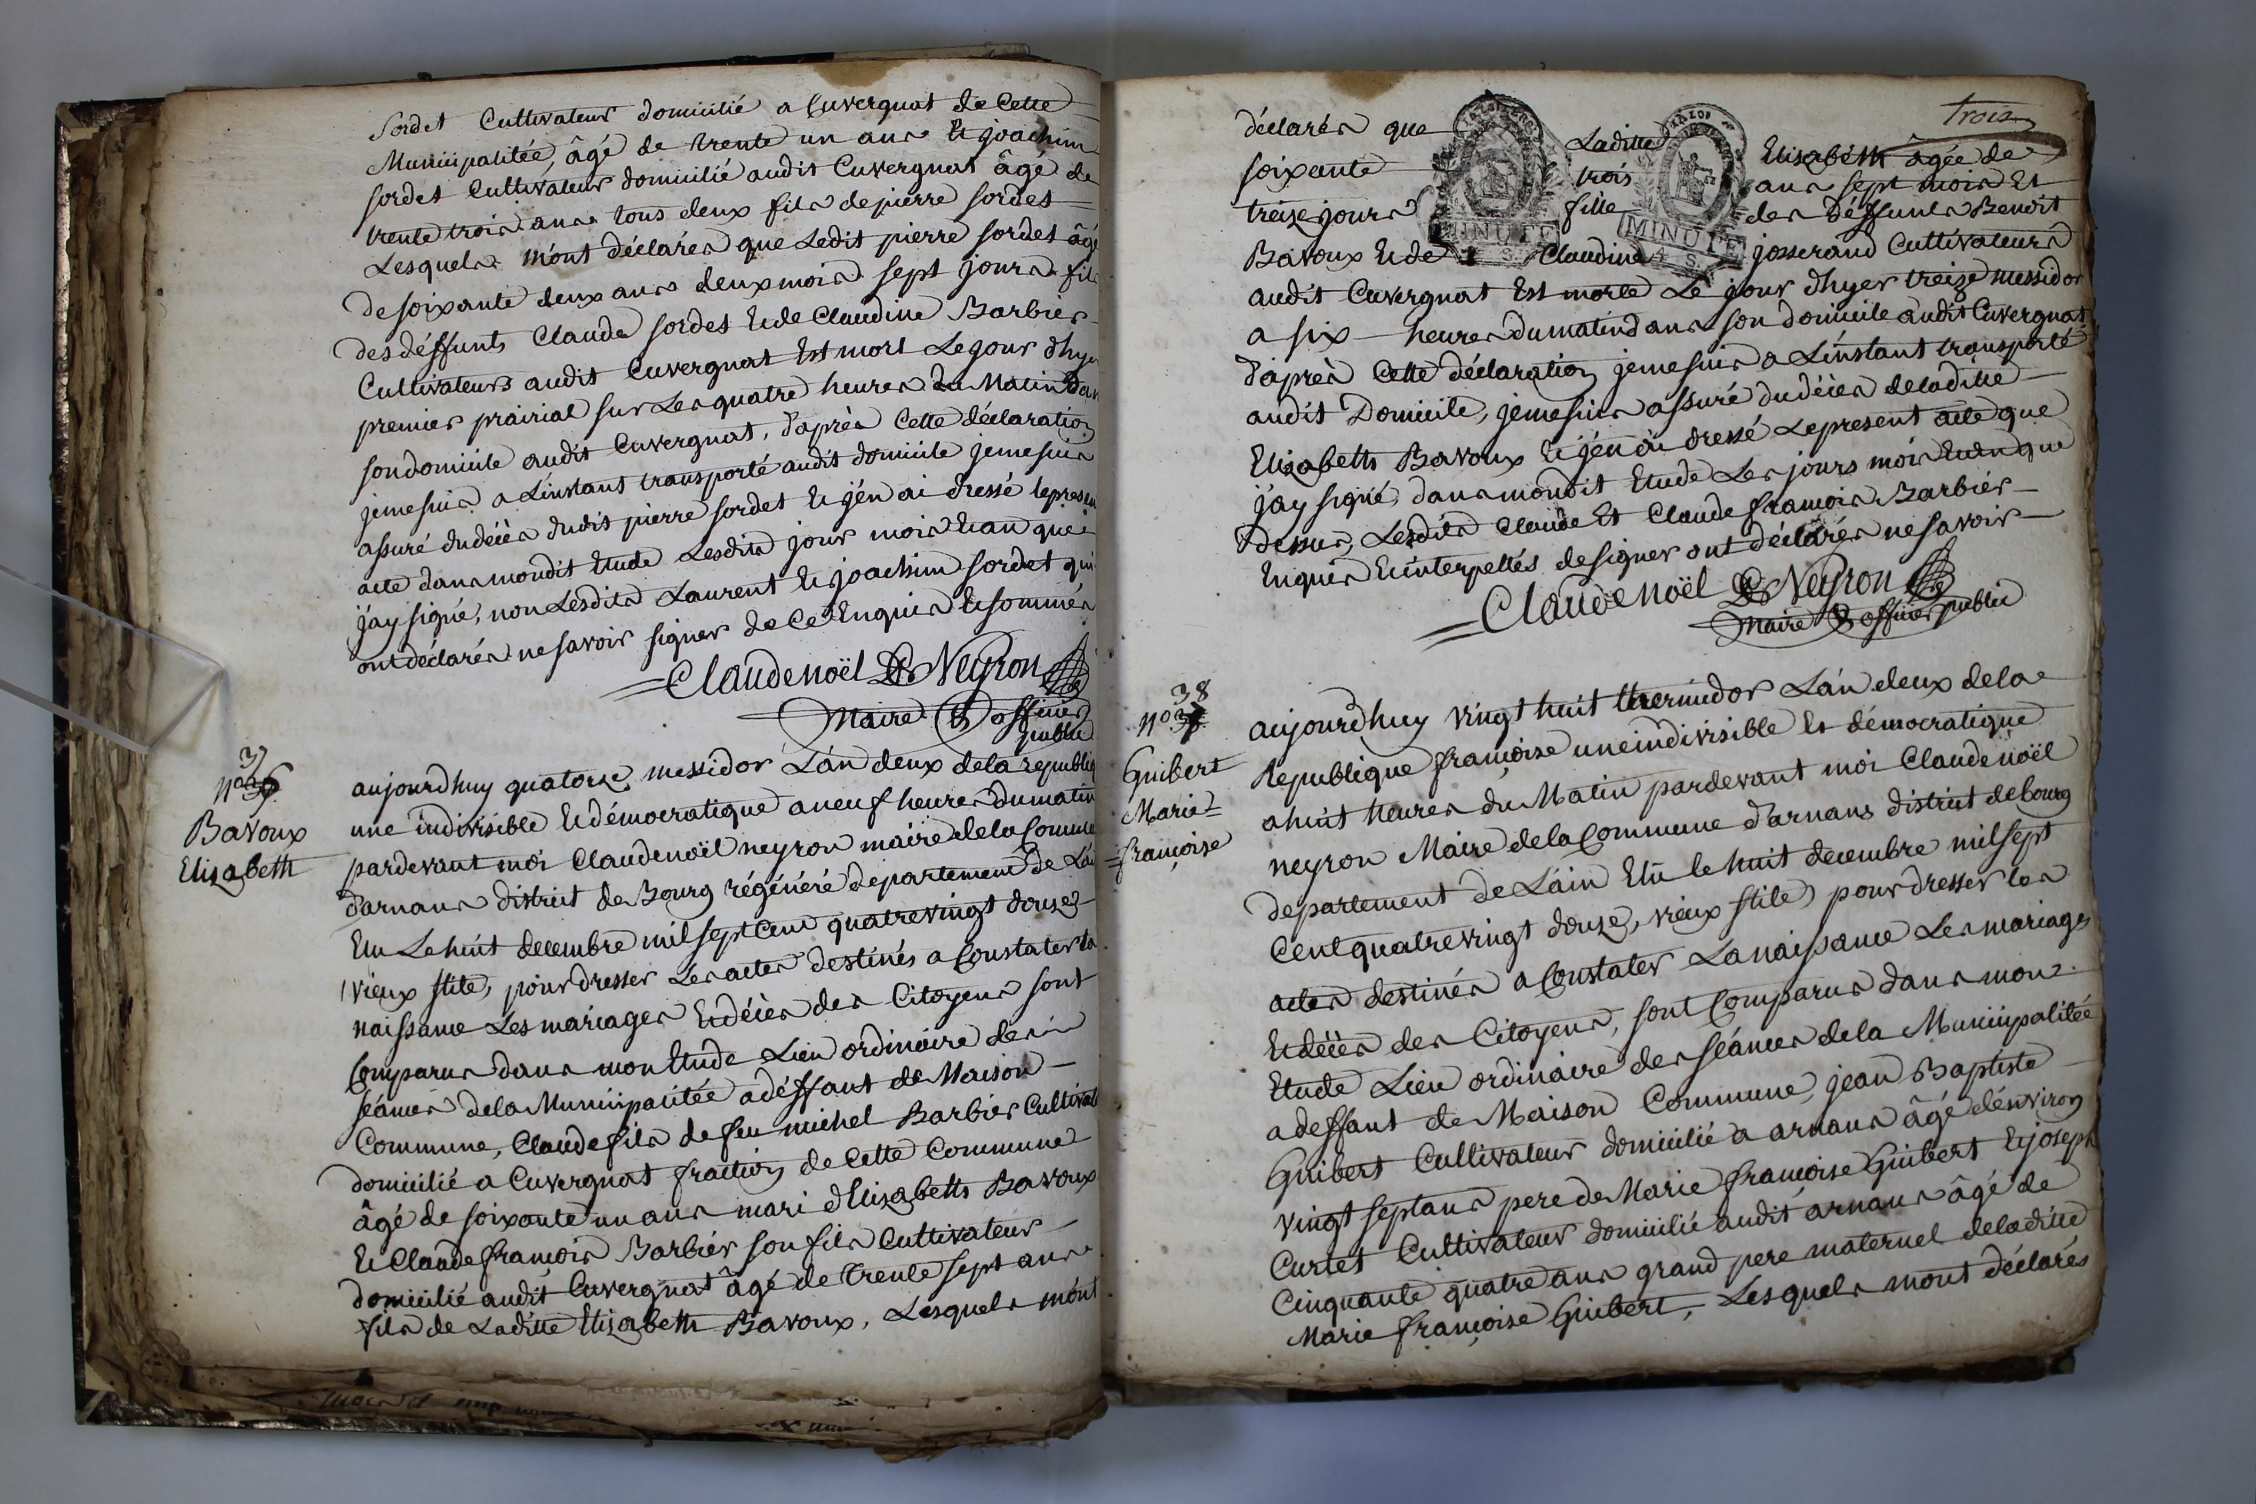 Sordet Cultivateur domicilié a Cuvergnat de Cette
Municipalitée, âgé de trente un ans Et joachim
sordet Cultivateur domicilié audit Cuvergnat âgé de
trente trois ans tous deux fils de pierre sordet
Lesquels m'ont déclarés que Ledit pierre sordet âgé
de soixante deux ans deux mois sept jours fils
des déffunts Claude sordet Et de Claudine Barbier
Cultivateurs audit Cuvergnat Est mort Le jour d'hyer
premier prairial sur Les quatre heures du Matin Dans
son domicile audit Cuvergnat, d'après Cette déclaration
je me suis a L'instant transporté audit domicile je me suis
assuré du déces dudit pierre sordet Et j'en ai dressé le present
acte dans mondit Etude Lesdits jour mois Et an que
j'ay signé, non Lesdits Laurent Et joachim sordet qui
ont déclarés ne savoir signer de Ce Enquis Et sommés
Claude noël Neyron
Maire & officier
public
37
N° 36
Bavoux
Elisabeth
aujourd'huy quatorze messidor L'an deux de la republiq
une indivisible Et démocratique a neuf heures du matin
pardevant moi Claude noël neyron maire de la Commune
d'arnans district de Bourg régénéré departement de L'ain
Elu Le huit decembre mil sept Cent quatre vingt douze
(vieux stile) pour dresser Les actes destinés a Constater la
naissance Les mariages Et déces des Citoyens sont
Comparus dans mon Etude Lieu ordinaire des
séances de la Municipalitée a déffaut de Maison
Commune, Claude fils de feu michel Barbier Cultivat
domicilié a Cuvergnat fraction de Cette Commune
âgé de soixante un ans mari d'Elizabeth Bavoux
Et Claude françois Barbier son fils Cultivateur
domicilié audit Cuvergnat âgé de trente sept ans
fils de Laditte Elizabeth Bavoux, Lesquels m'ont
trois
déclarés que Laditte Elizabeth âgée de
soixante trois ans sept mois Et
treize jours fille des déffunts Benoit
Bavoux Et de Claudine josserand Cultivateurs
MINUTE
MINUTE
4 S.
audit Cuvergnat Est morte Le jour d'hyer treize messidor
a six heures du matin dans son domicile audit Cuvergnat
d'après Cette déclaration je me suis a L'instant transporté
audit Domicile, je me suis assuré du déces de laditte
Elizabeth Bavoux Et j'en ai dressé Le present acte que
j'ay signé, dans mondit Etude Les jours mois Et an que
dessus, Lesdits Claude Et Claude françois Barbier
Enquis Et interpellés de signer ont déclarés ne savoir
Claude noël Neyron
Maire & officier public
38
N° 37
Guibert
Marie
françoise
aujourd'huy vingt huit thermidor L'an deux de la
Republique françoise une indivisible Et démocratique
a huit heures du Matin pardevant moi Claude noël
neyron Maire de la Commune d'arnans district de bourg
departement de L'ain Elu le huit decembre mil sept
Cent quatre vingt douze, (vieux stile) pour dresser les
actes destinés a Constater La naissance Les mariages
Et déces des Citoyens, sont Comparus dans mon
Etude Lieu ordinaire des séances de la Municipalitée
a deffaut de Maison Commune, jean Baptiste
Guibert Cultivateur domicilié a arnans âgé d'environ
vingt sept ans pere de Marie françoise Guibert Et joseph
Curtet Cultivateur domicilié audit arnans âgé de
Cinquante quatre ans grand pere maternel de laditte
Marie françoise Guibert, Lesquels m'ont déclarés